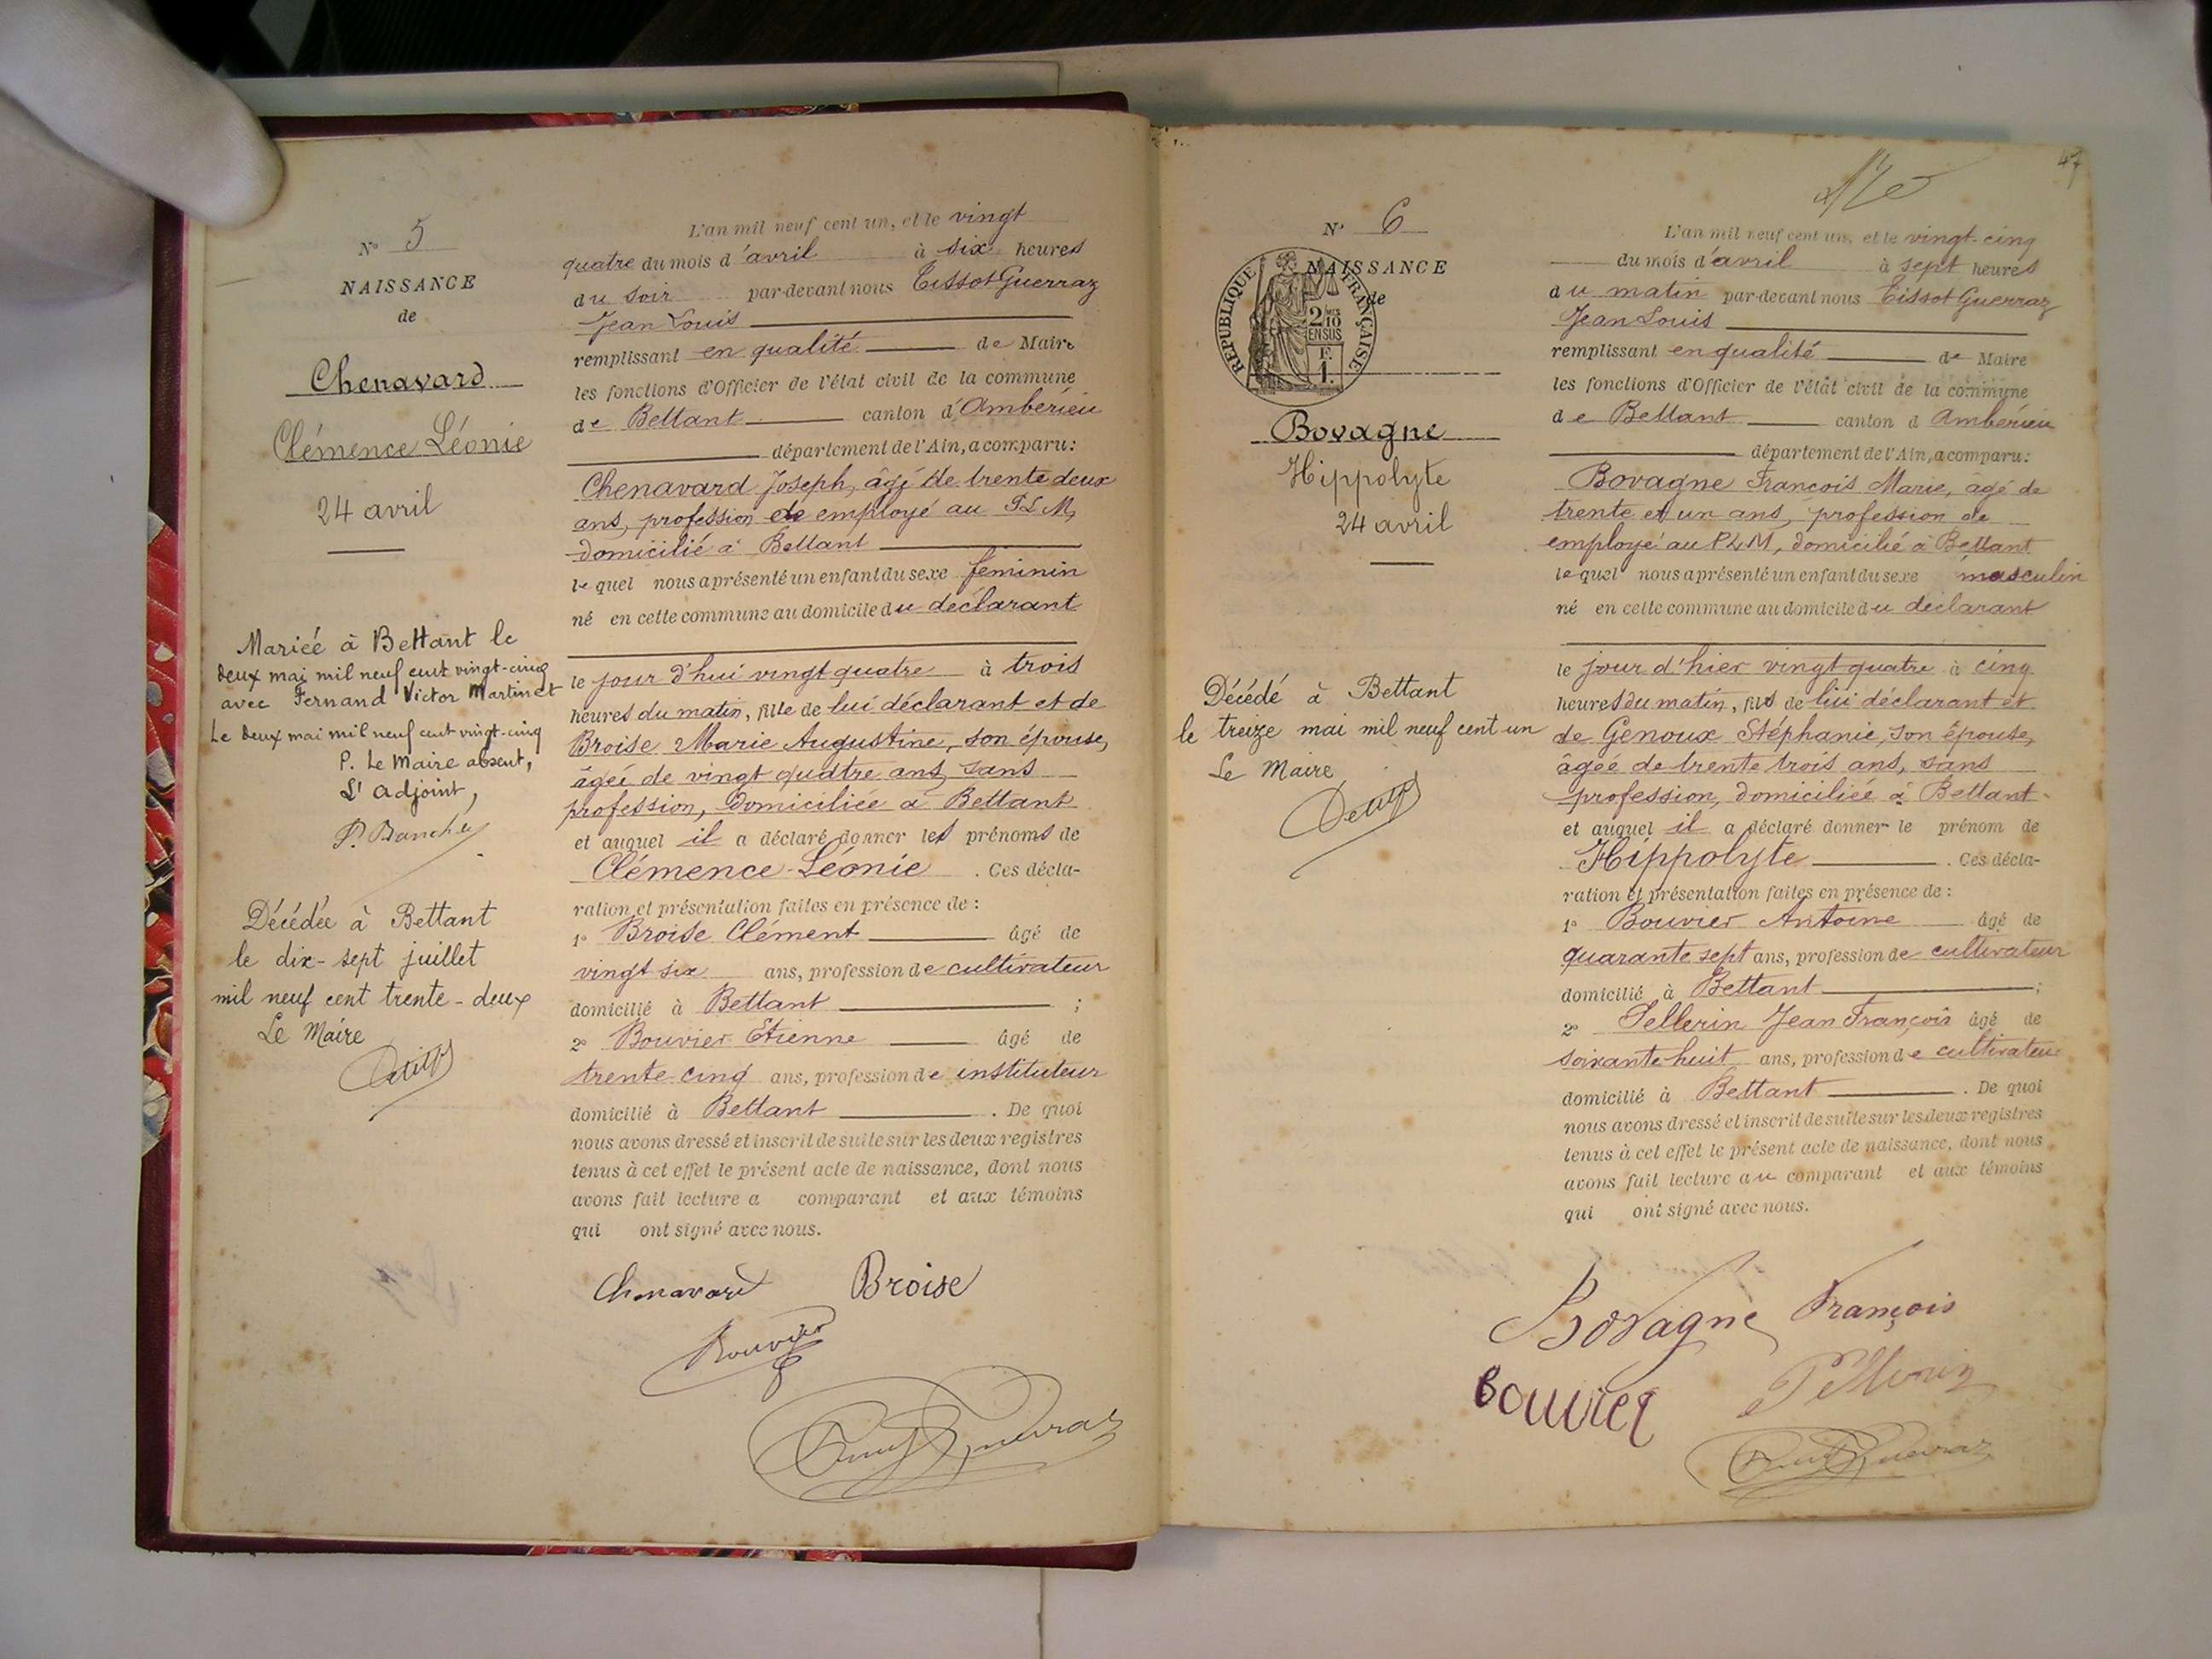 N° 5
NAISSANCE
de
Chenavard
Clémence Léonie
24 avril
Mariée à Bettant le
deux mai mil neuf cent vingt-cinq
avec Fernand Victor Martinet
Le deux mai mil neuf cent vingt-cinq
P. Le Maire absent,
L'adjoint,
Décédée à Bettant
le dix-sept juillet
mil neuf cent trente-deux
Le Maire
L'an mil neuf cent un, et le vingt
quatre du mois d'avril à six heures
du soir par-devant nous Tissot Guerraz
Jean Louis
remplissant en qualité de Maire
les fonctions d'Officier de l'état civil de la commune
de Bettant canton d'Ambérieu
département de l'Ain, a comparu :
Chenavard Joseph, âgé de trente deux
ans, profession de employé au P L M,
domicilié à Bettant
lequel nous a présenté un enfant du sexe féminin
né en cette commune au domicile du déclarant
le jour d'hui vingt quatre à trois
heures du matin, fille de lui déclarant et de
Broise Marie Augustine, son épouse,
âgée de vingt quatre ans, sans
profession, domiciliée à Bettant
et auquel il a déclaré donner les prénoms de
Clémence-Léonie. Ces décla-
ration et présentation faites en présence de :
1° Broise Clément âgé de
vingt six ans, profession de cultivateur
domicilié à Bettant ;
2° Bouvier Etienne âgé de
trente-cinq ans, profession de instituteur
domicilié à Bettant. De quoi
nous avons dressé et inscrit de suite sur les deux registres
tenus à cet effet le présent acte de naissance, dont nous
avons fait lecture a comparant et aux témoins
qui ont signé avec nous.
Chenavard Broise
Bouvier
47
N° 6
NAISSANCE
de
RÉPUBLIQUE FRANÇAISE
2/10
EN SUS
F.
1.
Bovagne
Hippolyte
24 avril
Décédé à Bettant
le treize mai mil neuf cent un
Le Maire
L'an mil neuf cent un, et le vingt-cinq
du mois d'avril à sept heures
du matin par-devant nous Tissot Guerraz
Jean Louis
remplissant en qualité de Maire
les fonctions d'Officier de l'état civil de la commune
de Bettant canton d Ambérieu
département de l'Ain, a comparu :
Bovagne François Marie, agé de
trente et un ans, profession de
employé au P L M, domicilié à Bettant
lequel nous a présenté un enfant du sexe masculin
né en cette commune au domicile du déclarant
le jour d'hier vingt quatre à cinq
heures du matin, fils de lui déclarant et
de Genoux Stéphanie, son épouse,
agée de trente trois ans, sans
profession, domiciliée à Bettant
et auquel il a déclaré donner le prénom de
Hippolyte. Ces décla-
ration et présentation faites en présence de :
1° Bouvier Antoine âgé de
quarante sept ans, profession de cultivateur
domicilié à Bettant ;
2° Pellerin Jean François âgé de
soixante-huit ans, profession de cultivateur
domicilié à Bettant. De quoi
nous avons dressé et inscrit de suite sur les deux registres
tenus à cet effet le présent acte de naissance, dont nous
avons fait lecture au comparant et aux témoins
qui ont signé avec nous.
Bovagne François
Bouvier Pellerin